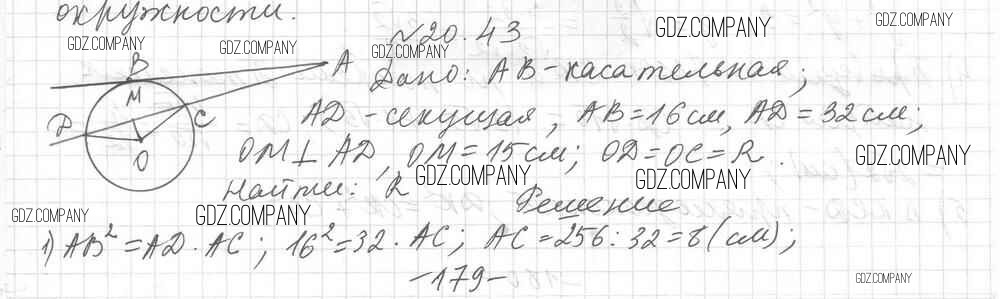 окружности.
№20.43
GDZ.COMPANY
GDZ.COMPANY
GDZ.COMPANY
GDZ.COMPANY
GDZ.COMPANY
B
A
Дано: AB-касательная;
M
D
C
O
AD-секущая, AB=16см, AD=32см;
OM⊥AD, OM=15см; OD=OC=R.
GDZ.COMPANY
Найти: R
GDZ.COMPANY
GDZ.COMPANY
Решение
GDZ.COMPANY
GDZ.COMPANY
1) AB²=AD·AC; 16²=32·AC; AC=256:32=8(см);
-179-
GDZ.COMPANY